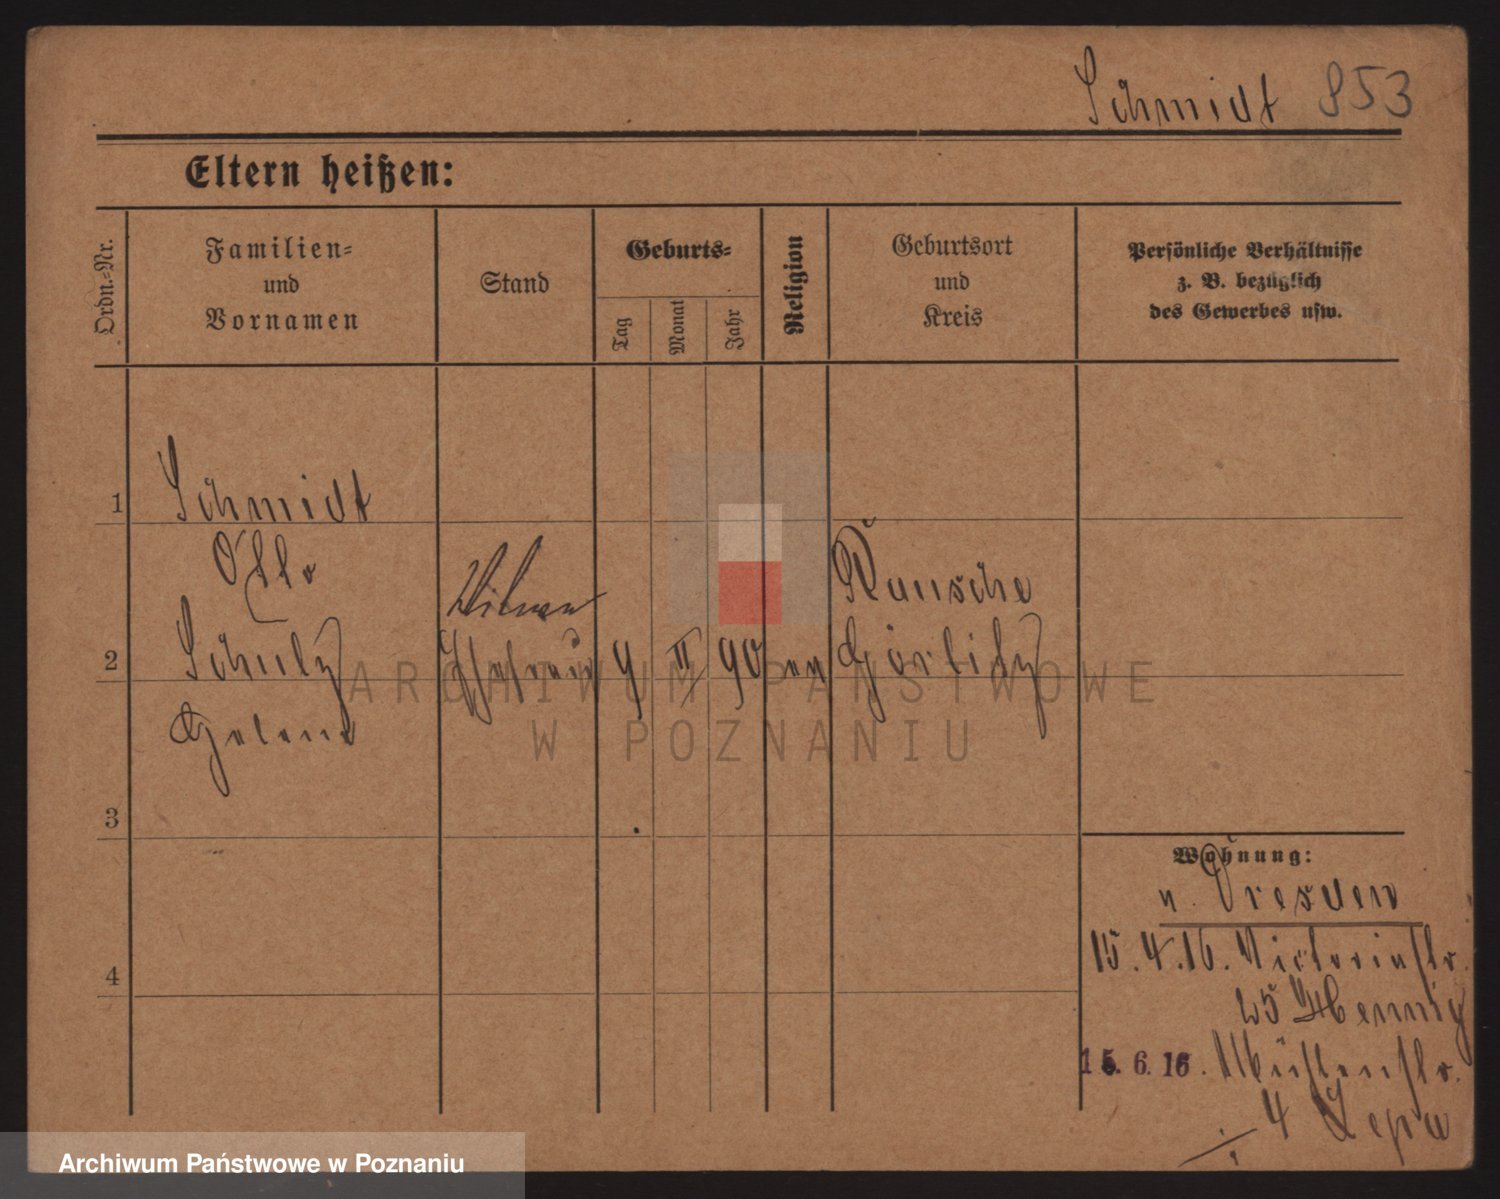 Schmidt 853
Eltern heißen:
Ordn.-Nr.
Familien-
und
Vornamen
Stand
Geburts-
Tag
Monat
Jahr
Religion
Geburtsort
und
Kreis
Persönliche Verhältnisse
z. B. bezüglich
des Gewerbes usw.
1
Schmidt
Otto
2
Schulz
Helene
9 II 90 ev
Rausche
Görlitz
3
4
Wohnung:
n. Dresden
15.4.16. Victoriastr.
25 Hennig
15. 6. 16. Mühlenstr.
4
ARCHIWUM PAŃSTWOWE
W POZNANIU
Archiwum Państwowe w Poznaniu